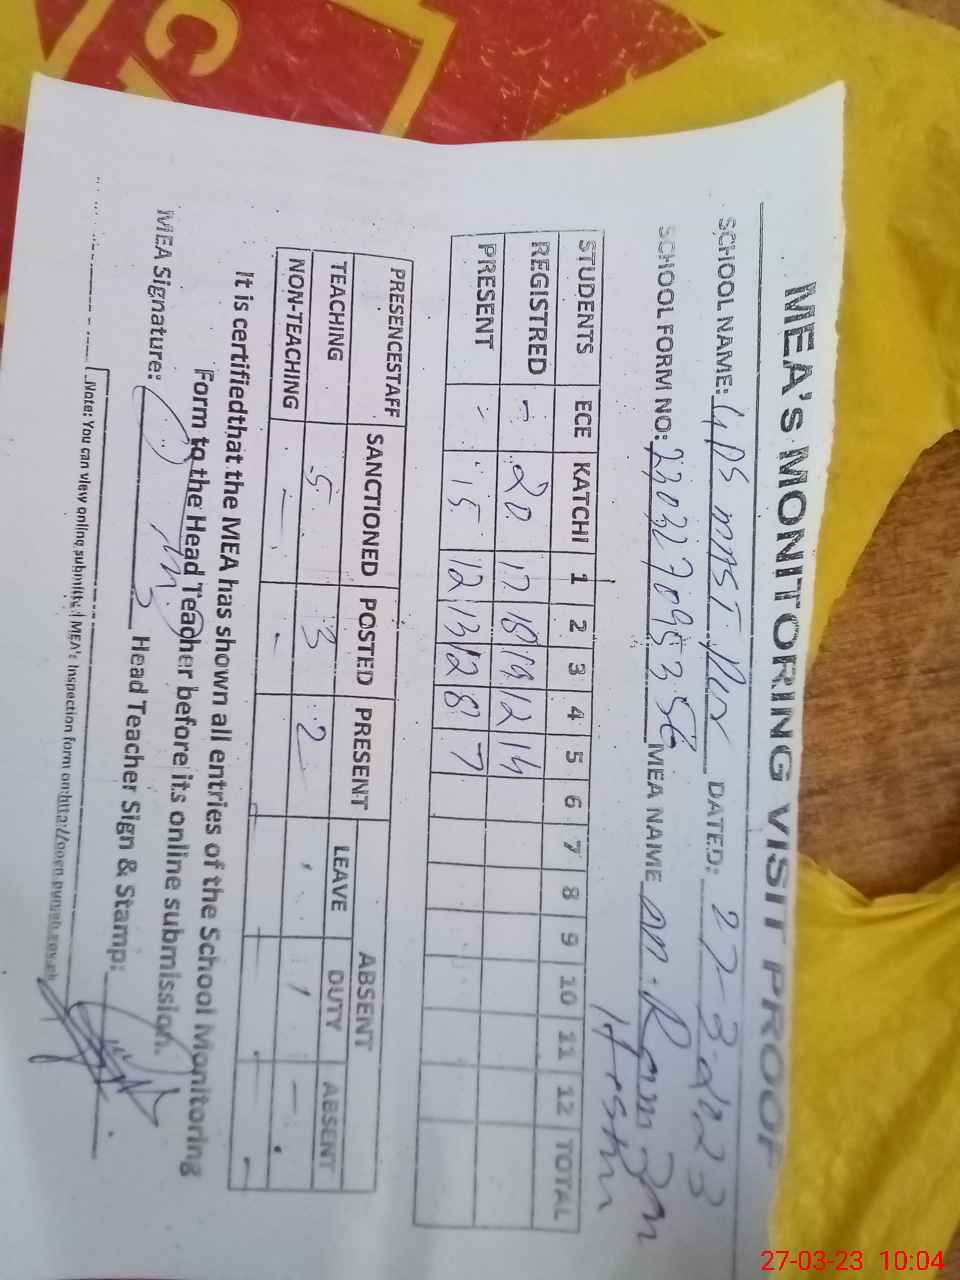 MEA's MONITORING VISIT PROOF
SCHOOL NAME: DATED: 27-3-2023
SCHOOL FORM NO: MEA NAME
STUDENTS ECE KATCHI 1 2 3 4 5 6 7 8 9 10 11 12 TOTAL
REGISTRED - 20 17 18 19 12 14
PRESENT - 15 12 13 12 8 7
PRESENCESTAFF SANCTIONED POSTED PRESENT ABSENT
LEAVE DUTY ABSENT
TEACHING 5 3 2 - - -
NON-TEACHING - - - - - -
It is certifiedthat the MEA has shown all entries of the School Monitoring
Form to the Head Teacher before its online submission.
MEA Signature: Head Teacher Sign & Stamp:
Note: You can view online submitted MEA's Inspection form on:
27-03-23 10:04